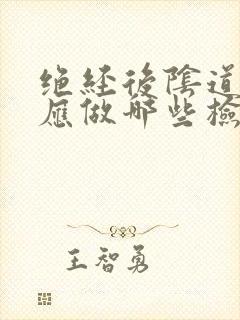 绝经後陰道
應做哪些檢
王智勇